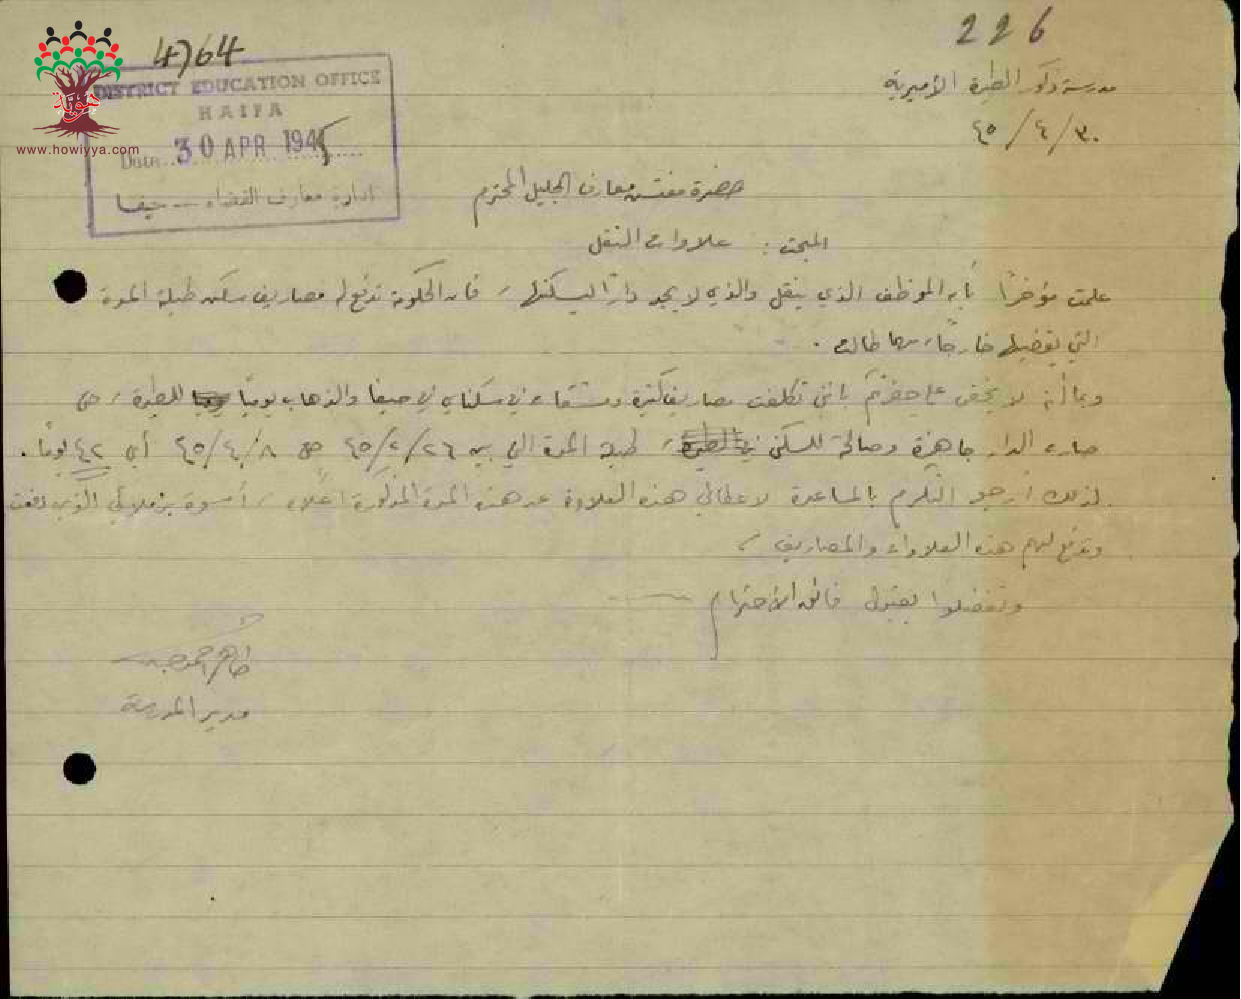 4764
226
DISTRICT EDUCATION OFFICE
HAIFA
Date 30 APR 1945
ادارة معارف القضاء — حيفا
www.howiyya.com
هوية
مدرسة ذكور الطيرة الأميرية
٣٠ / ٤ / ٤٥
حضرة مفتش معارف الجليل المحترم
المبحث : علاوات النقل
علمت مؤخراً بأن الموظف الذي ينقل والذي لا يجد داراً ليسكنها، فان الحكومة تدفع له مصاريف سكن طيلة المدة
التي يقضيها خارجاً، مهما طالت .
وبما أنه لا يخفى على حضرتكم بانني تكلفت مصاريف كثيرة ومشقات في سكناي في حيفا والذهاب يومياً للطيرة، حتى
صارت الدار جاهزة وصالحة للسكنى، طيلة المدة التي بين ٤٥/٢/٢٦ حتى ٤٥/٤/٨ أي ٤٢ يوماً .
لذلك أرجو التكرم بالمساعدة لاعطائي هذه العلاوة عن هذه المدة المذكورة اعلاه، أسوة بزملائي الذين دفعت
وتدفع لهم هذه العلاوات والمصاريف،
وتفضلوا بقبول فائق الاحترام
مدير المدرسة